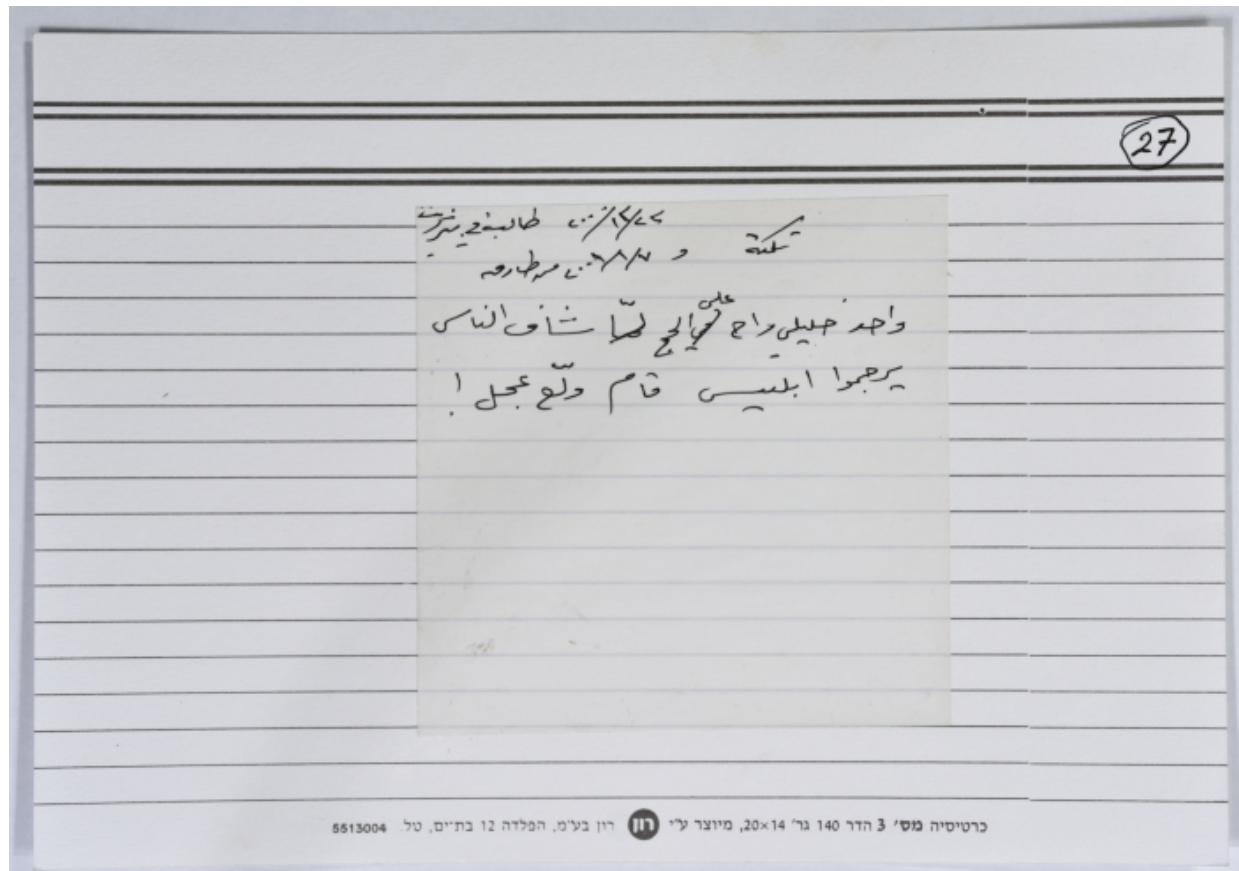 27
نكتة ٢٠٠٠/١٢/٢٢ طالبة في بيرزيت
و ٢٠٠١/١/٧ من طارق
واحد خليلي راح على الحج لمّا شاف الناس
يرجموا ابليس قام ولّع عجل !
כרטיסיה מס׳ 3 הדר 140 גר׳ 20×14, מיוצר ע״י רון רון בע״מ, הפלדה 12 בת־ים, טל. 5513004